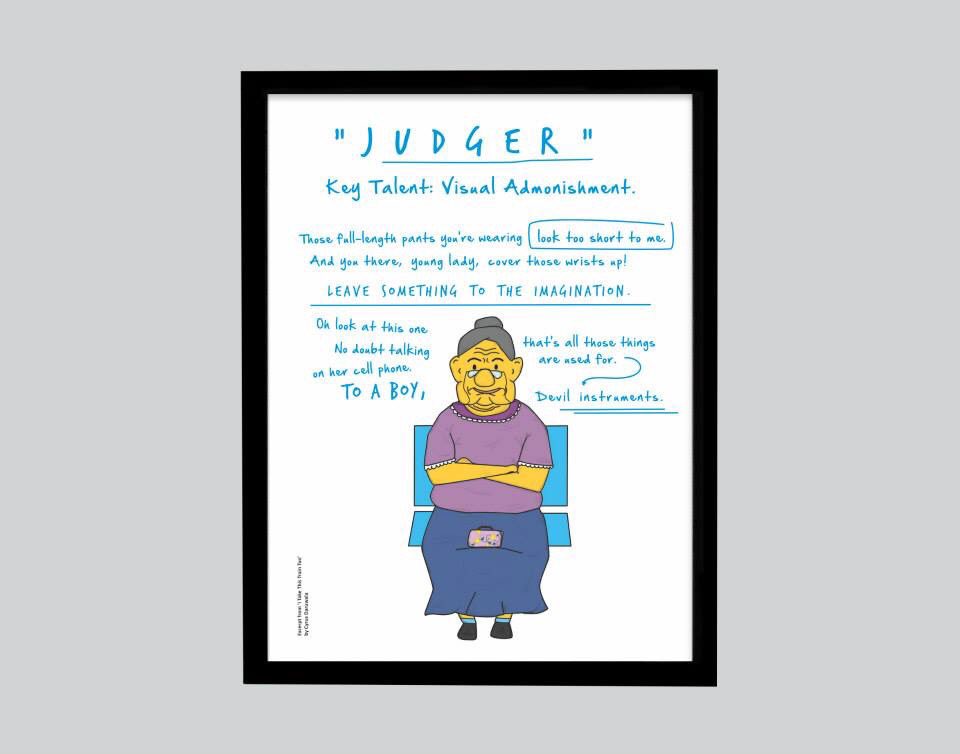 "JUDGER"
Key Talent: Visual Admonishment.
Those full-length pants you're wearing look too short to me.
And you there, young lady, cover those wrists up!
LEAVE SOMETHING TO THE IMAGINATION.
Oh look at this one
No doubt talking
on her cell phone.
TO A BOY,
that's all those things
are used for.
Devil instruments.
Excerpt from 'I Take This Train Too'
by Cyrus Daruwala